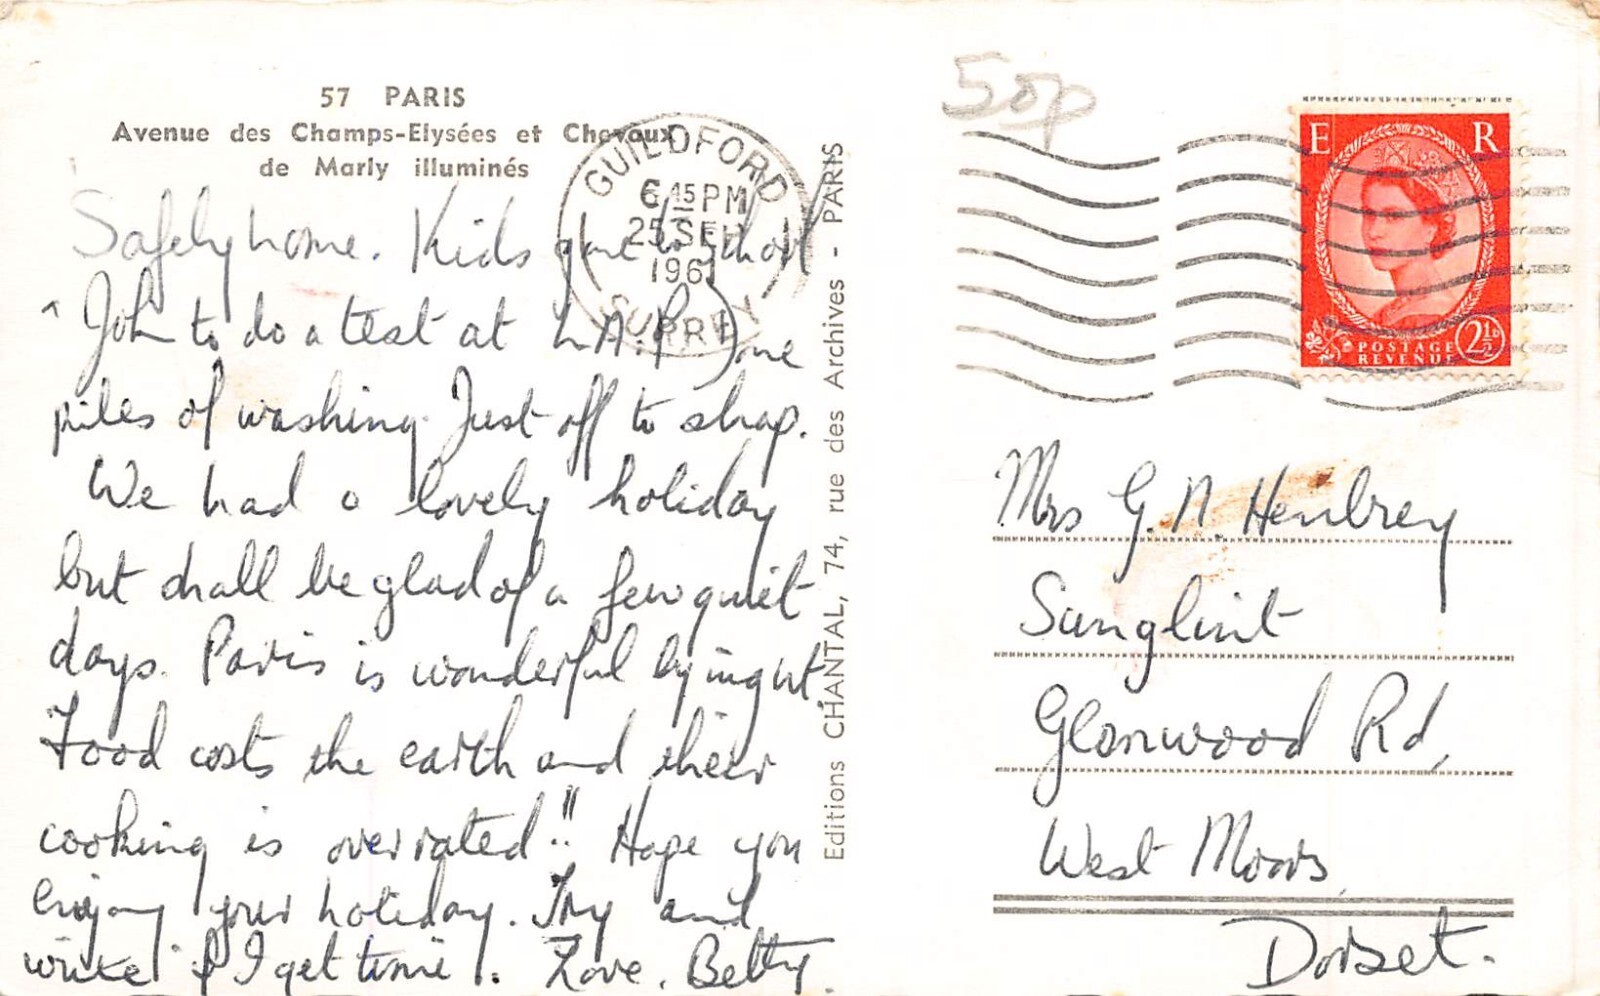 57 PARIS
Avenue des Champs-Elysées et Chevaux
de Marly illuminés
Safely home. Kids gone to School
John to do a test at
piles of washing. Just off to shop.
We had a lovely holiday
but shall be glad of a few quiet
days. Paris is wonderful by night.
Food costs the earth and their
cooking is overrated!! Hope you
enjoy your holiday. Try and
write if I get time. Love. Betty.
Editions CHANTAL, 74, rue des Archives - PARIS
GUILDFORD
6.15 PM
25 SEP
196
SURREY
50p
E R
POSTAGE
REVENUE
2½D
Mrs G. N. Henbrey
Sunglint
Glenwood Rd,
West Moors,
Dorset.